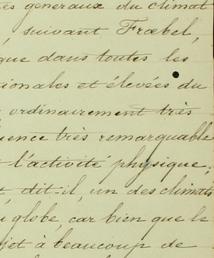 es généraux du climat
, suivant Frœbel,
que dans toutes les
ionales et élevées du
ordinairement très
uence très remarquable
l'activité physique,
dit-il, un des climats
globe car bien que le
jet à beaucoup de